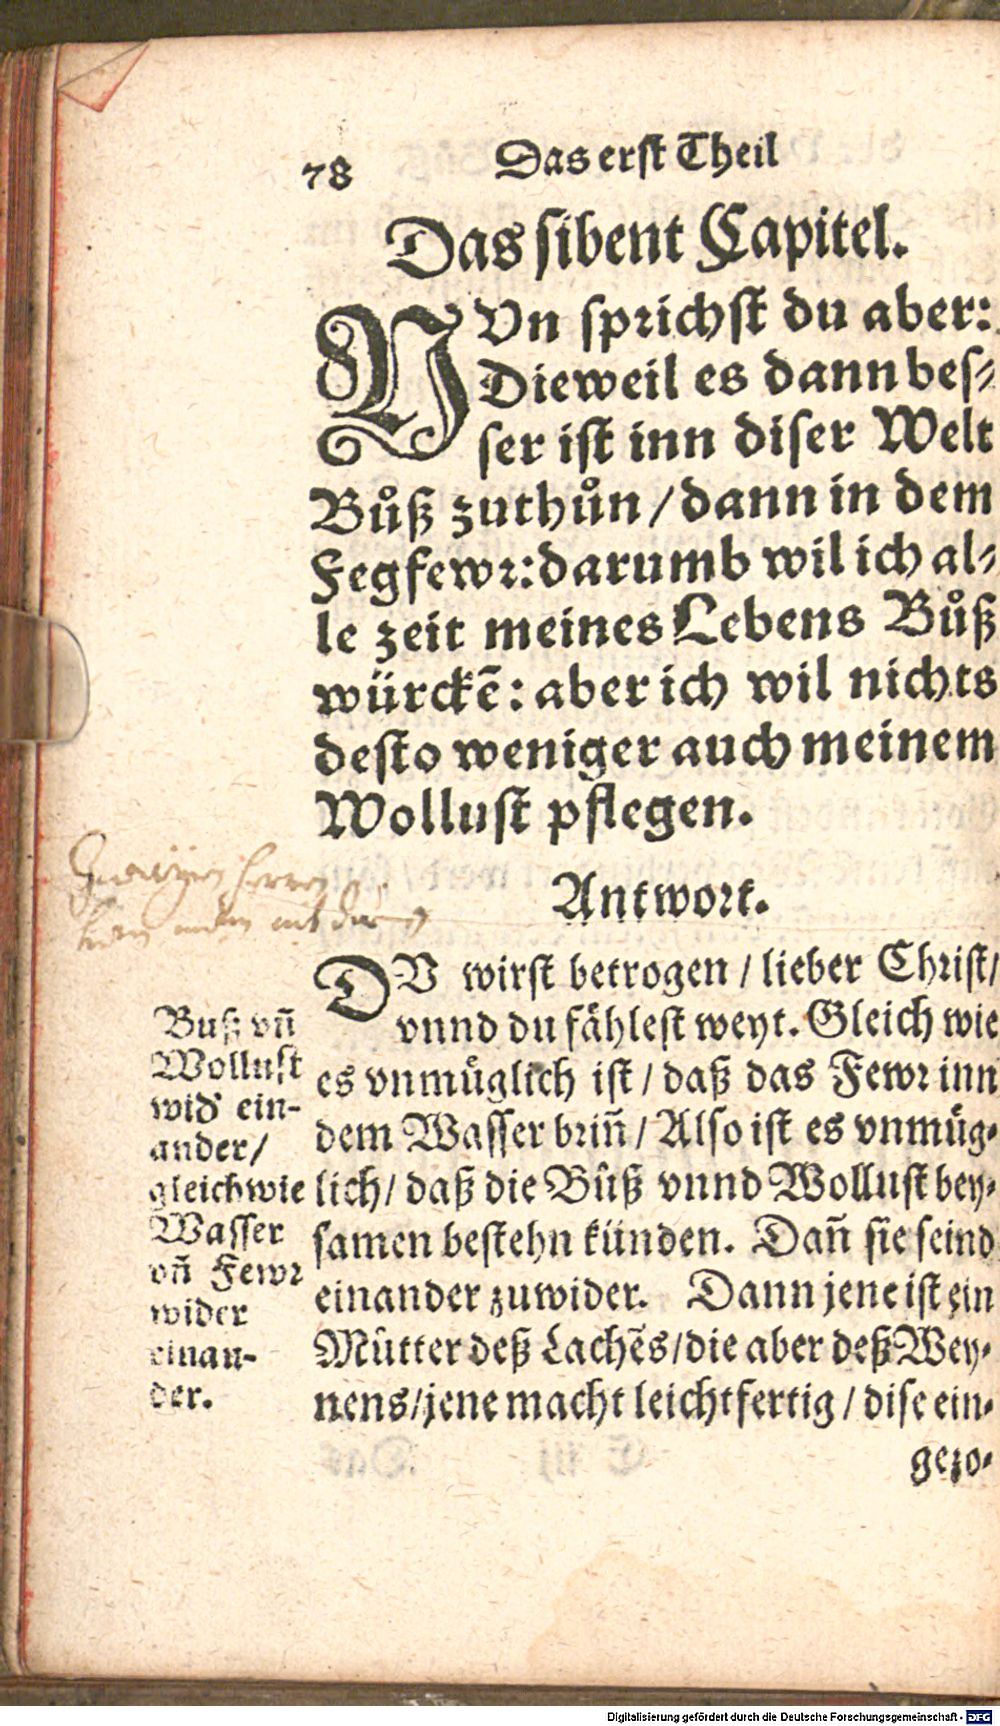 78 Das erst Theil
Das sibent Capitel.
NVn sprichst du aber:
Dieweil es dann bes⸗
ser ist inn diser Welt
Bůß zuthůn / dann in dem
Fegfewr: darumb wil ich al⸗
le zeit meines Lebens Bůß
würckē: aber ich wil nichts
desto weniger auch meinem
Wollust pflegen.
Antwort.
DV wirst betrogen / lieber Christ /
vnnd du fählest weyt. Gleich wie
es vnmüglich ist / daß das Fewr inn
dem Wasser briñ / Also ist es vnmüg⸗
lich / daß die Bůß vnnd Wollust bey⸗
samen bestehn künden. Dañ sie seind
einander zuwider. Dann jene ist ein
Můtter deß Lachēs / die aber deß Wey⸗
nens / jene macht leichtfertig / dise ein⸗
gezo⸗
Buß vñ
Wollust
wid' ein-
ander /
gleich wie
Wasser
vñ Fewr
wider
einan-
der.
Digitalisierung gefördert durch die Deutsche Forschungsgemeinschaft - DFG